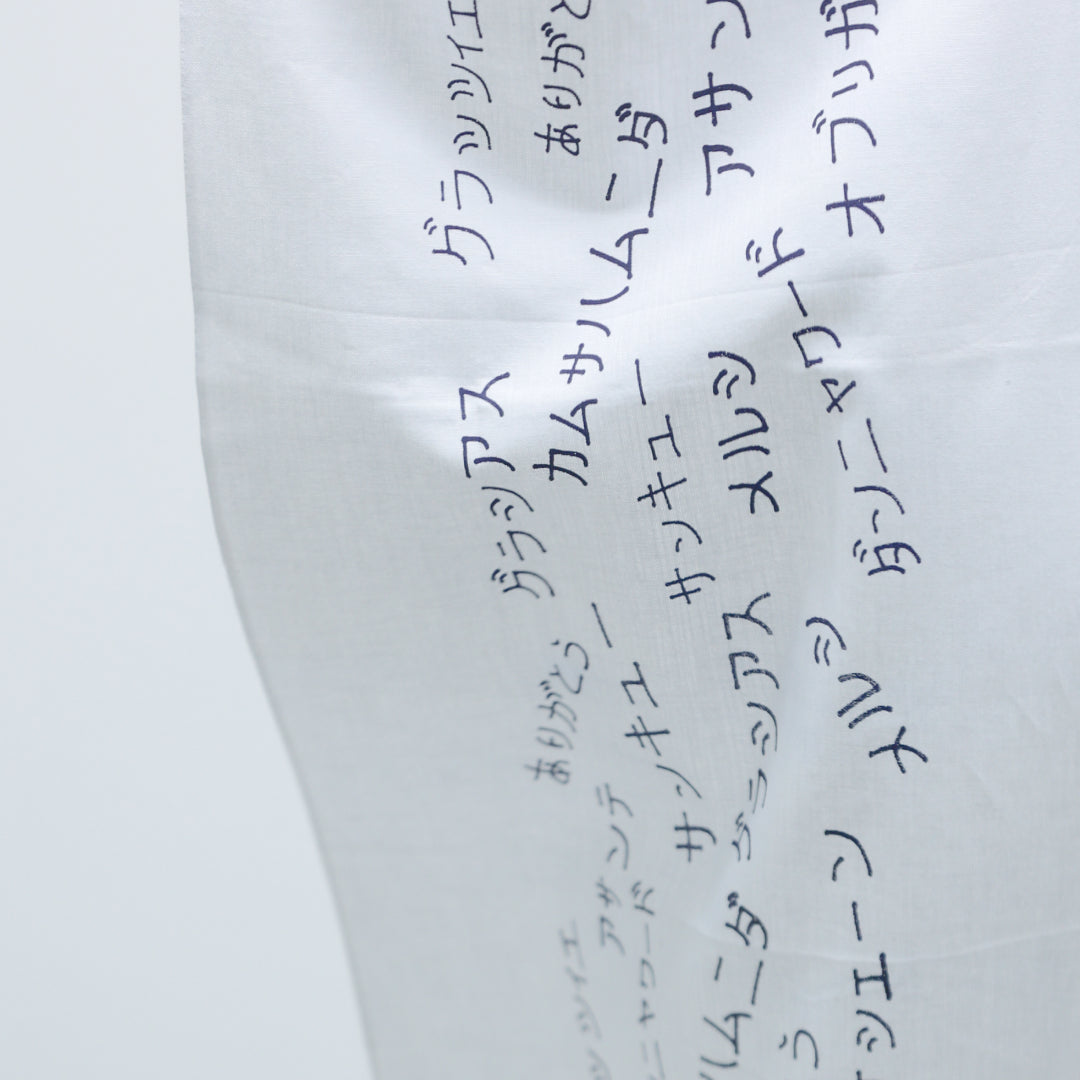 グラシアス グラッツィエ
ありがとう カムサハムニダ ありがと
アサンテ サンキュー サンキュー アサン
ニャワード グラシアス メルシ ダンニャワード オブリガ
ハムニダ メルシ
う
ッツェーン